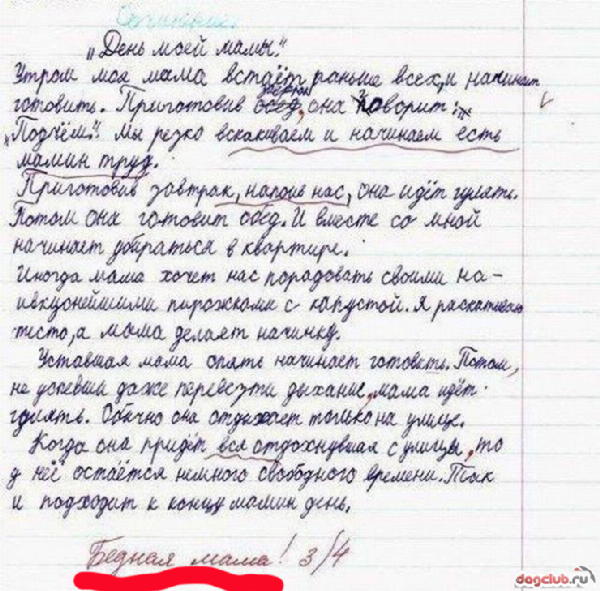 Сочинение.
„День моей мамы."
Утром моя мама встаёт раньше всех, и начинает
готовить. Приготовив обед, она говорит:
„Подъём." Мы резко вскакиваем и начинаем есть
мамин труд.
Приготовив завтрак, напоив нас, она идёт гулять.
Потом она готовит обед. И вместе со мной
начинает убираться в квартире.
Иногда мама хочет нас порадовать своими на-
ивкуснейшими пирожками с капустой. Я раскатываю
тесто, а мама делает начинку.
Уставшая мама опять начинает готовить. Потом,
не успевши даже перевезти дыхание, мама идёт
гулять. Обычно она отдыхает только на улице.
Когда она придёт вся отдохнувшая с улицы, то
у неё остаётся немного свободного времени. Так
и подходит к концу мамин день.
Бедная мама! 3/4
dogclub.ru